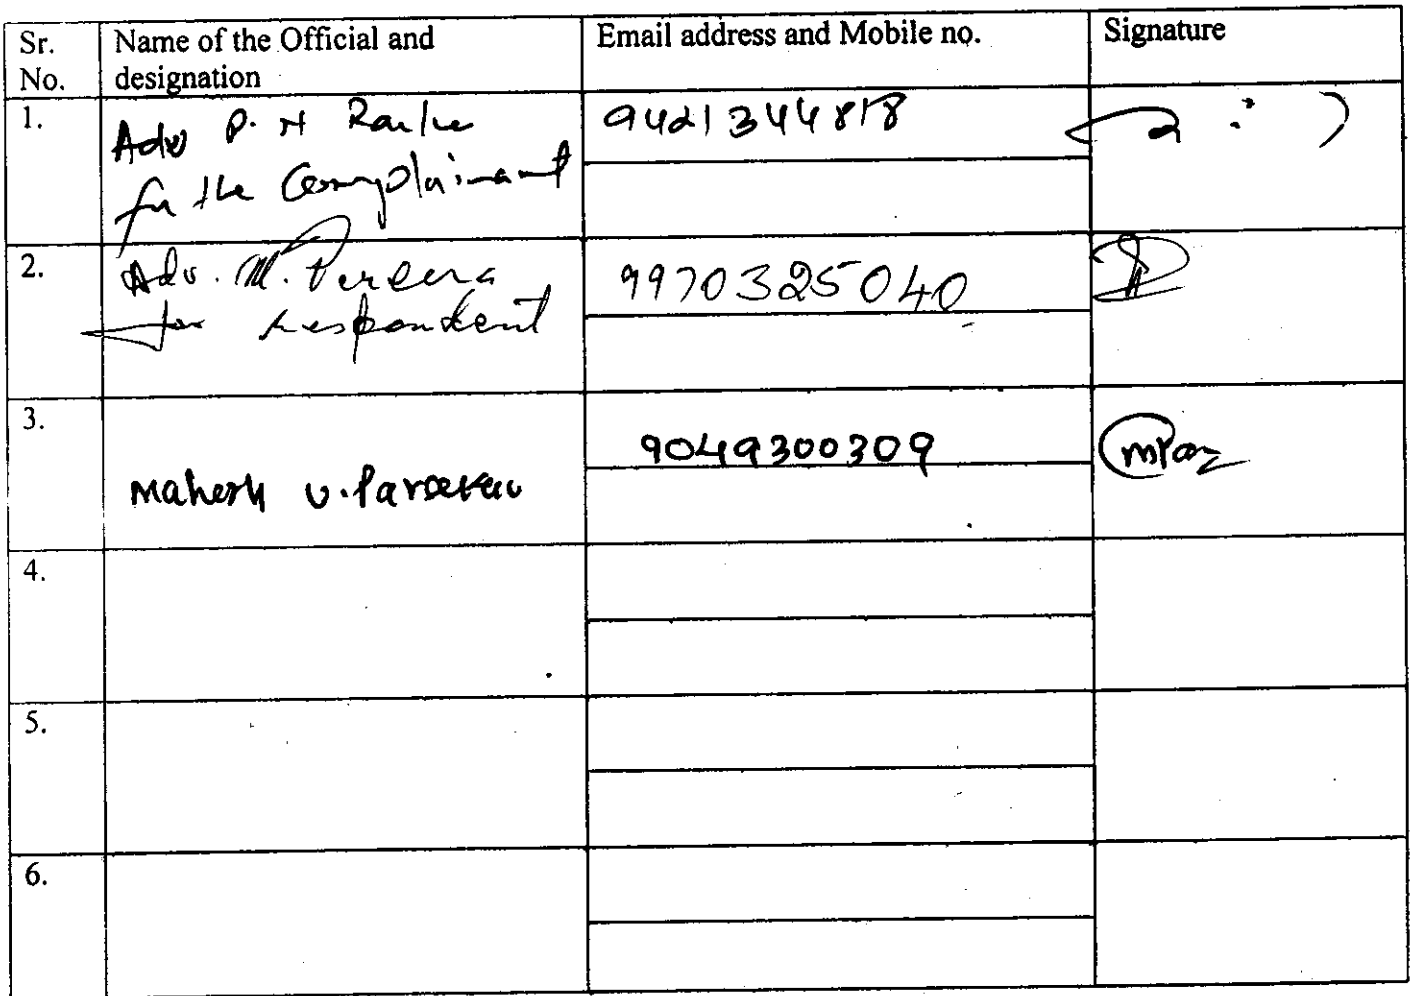 Sr. No.
Name of the Official and designation
Email address and Mobile no.
Signature
1.
Adv P. H
for the Complainant
9421344818
2.
Adv. M. Pereira
for respondent
9970325040
3.
Mahesh V.
9049300309
4.
5.
6.